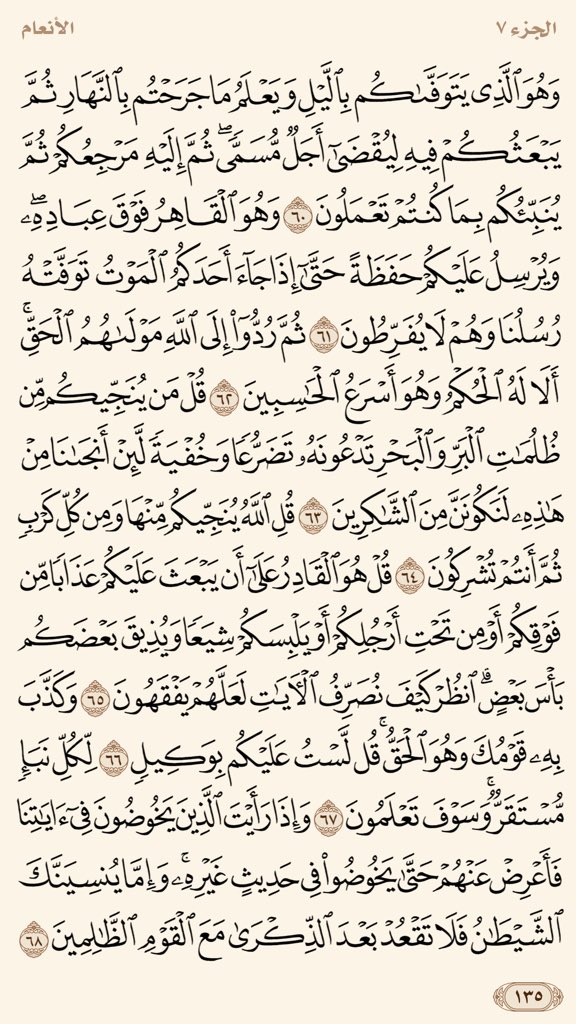 الجزء ٧
الأنعام
وَهُوَ ٱلَّذِى يَتَوَفَّىٰكُم بِٱلَّيۡلِ وَيَعۡلَمُ مَا جَرَحۡتُم بِٱلنَّهَارِ ثُمَّ
يَبۡعَثُكُمۡ فِيهِ لِيُقۡضَىٰٓ أَجَلٞ مُّسَمّٗىۖ ثُمَّ إِلَيۡهِ مَرۡجِعُكُمۡ ثُمَّ
يُنَبِّئُكُم بِمَا كُنتُمۡ تَعۡمَلُونَ ٦٠ وَهُوَ ٱلۡقَاهِرُ فَوۡقَ عِبَادِهِۦۖ
وَيُرۡسِلُ عَلَيۡكُمۡ حَفَظَةً حَتَّىٰٓ إِذَا جَآءَ أَحَدَكُمُ ٱلۡمَوۡتُ تَوَفَّتۡهُ
رُسُلُنَا وَهُمۡ لَا يُفَرِّطُونَ ٦١ ثُمَّ رُدُّوٓاْ إِلَى ٱللَّهِ مَوۡلَىٰهُمُ ٱلۡحَقِّۚ
أَلَا لَهُ ٱلۡحُكۡمُ وَهُوَ أَسۡرَعُ ٱلۡحَٰسِبِينَ ٦٢ قُلۡ مَن يُنَجِّيكُم مِّن
ظُلُمَٰتِ ٱلۡبَرِّ وَٱلۡبَحۡرِ تَدۡعُونَهُۥ تَضَرُّعٗا وَخُفۡيَةٗ لَّئِنۡ أَنجَىٰنَا مِنۡ
هَٰذِهِۦ لَنَكُونَنَّ مِنَ ٱلشَّٰكِرِينَ ٦٣ قُلِ ٱللَّهُ يُنَجِّيكُم مِّنۡهَا وَمِن كُلِّ كَرۡبٖ
ثُمَّ أَنتُمۡ تُشۡرِكُونَ ٦٤ قُلۡ هُوَ ٱلۡقَادِرُ عَلَىٰٓ أَن يَبۡعَثَ عَلَيۡكُمۡ عَذَابٗا مِّن
فَوۡقِكُمۡ أَوۡ مِن تَحۡتِ أَرۡجُلِكُمۡ أَوۡ يَلۡبِسَكُمۡ شِيَعٗا وَيُذِيقَ بَعۡضَكُم
بَأۡسَ بَعۡضٍۗ ٱنظُرۡ كَيۡفَ نُصَرِّفُ ٱلۡأٓيَٰتِ لَعَلَّهُمۡ يَفۡقَهُونَ ٦٥ وَكَذَّبَ
بِهِۦ قَوۡمُكَ وَهُوَ ٱلۡحَقُّۚ قُل لَّسۡتُ عَلَيۡكُم بِوَكِيلٖ ٦٦ لِّكُلِّ نَبَإٖ
مُّسۡتَقَرّٞۚ وَسَوۡفَ تَعۡلَمُونَ ٦٧ وَإِذَا رَأَيۡتَ ٱلَّذِينَ يَخُوضُونَ فِىٓ ءَايَٰتِنَا
فَأَعۡرِضۡ عَنۡهُمۡ حَتَّىٰ يَخُوضُواْ فِى حَدِيثٍ غَيۡرِهِۦۚ وَإِمَّا يُنسِيَنَّكَ
ٱلشَّيۡطَٰنُ فَلَا تَقۡعُدۡ بَعۡدَ ٱلذِّكۡرَىٰ مَعَ ٱلۡقَوۡمِ ٱلظَّٰلِمِينَ ٦٨
١٣٥